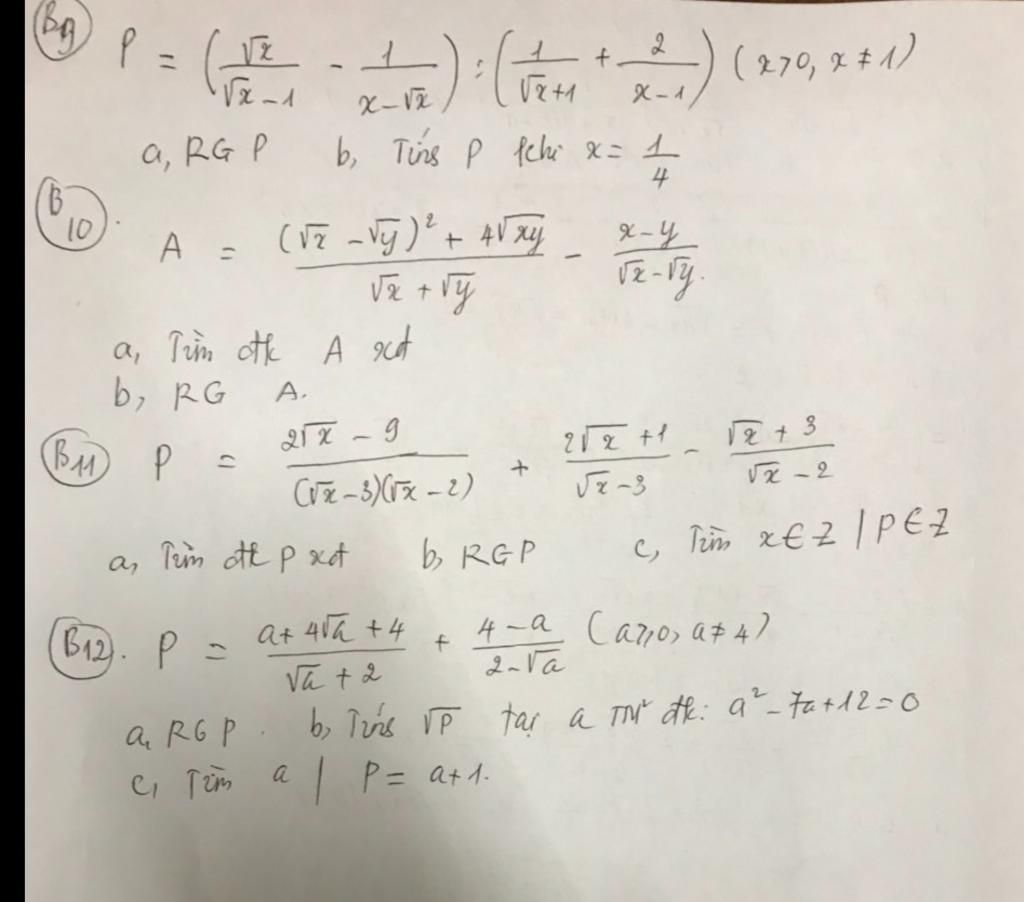 B9 P = (√x/(√x-1) - 1/(x-√x)) : (1/(√x+1) + 2/(x-1)) (x>0, x≠1)
a, RGP b, Tính P khi x = 1/4
B10. A = ((√x - √y)² + 4√xy)/(√x + √y) - (x-y)/(√x-√y).
a, Tìm đk A xđ
b, RG A.
B11 P = (2√x - 9)/((√x-3)(√x-2)) + (2√x+1)/(√x-3) - (√x+3)/(√x-2)
a, Tìm đk P xđ b, RGP c, Tìm x∈Z | P∈Z
B12. P = (a+4√a+4)/(√a+2) + (4-a)/(2-√a) (a≥0, a≠4)
a, RGP. b, Tính √P tại a TM đk: a²-7a+12=0
c, Tìm a | P = a+1.